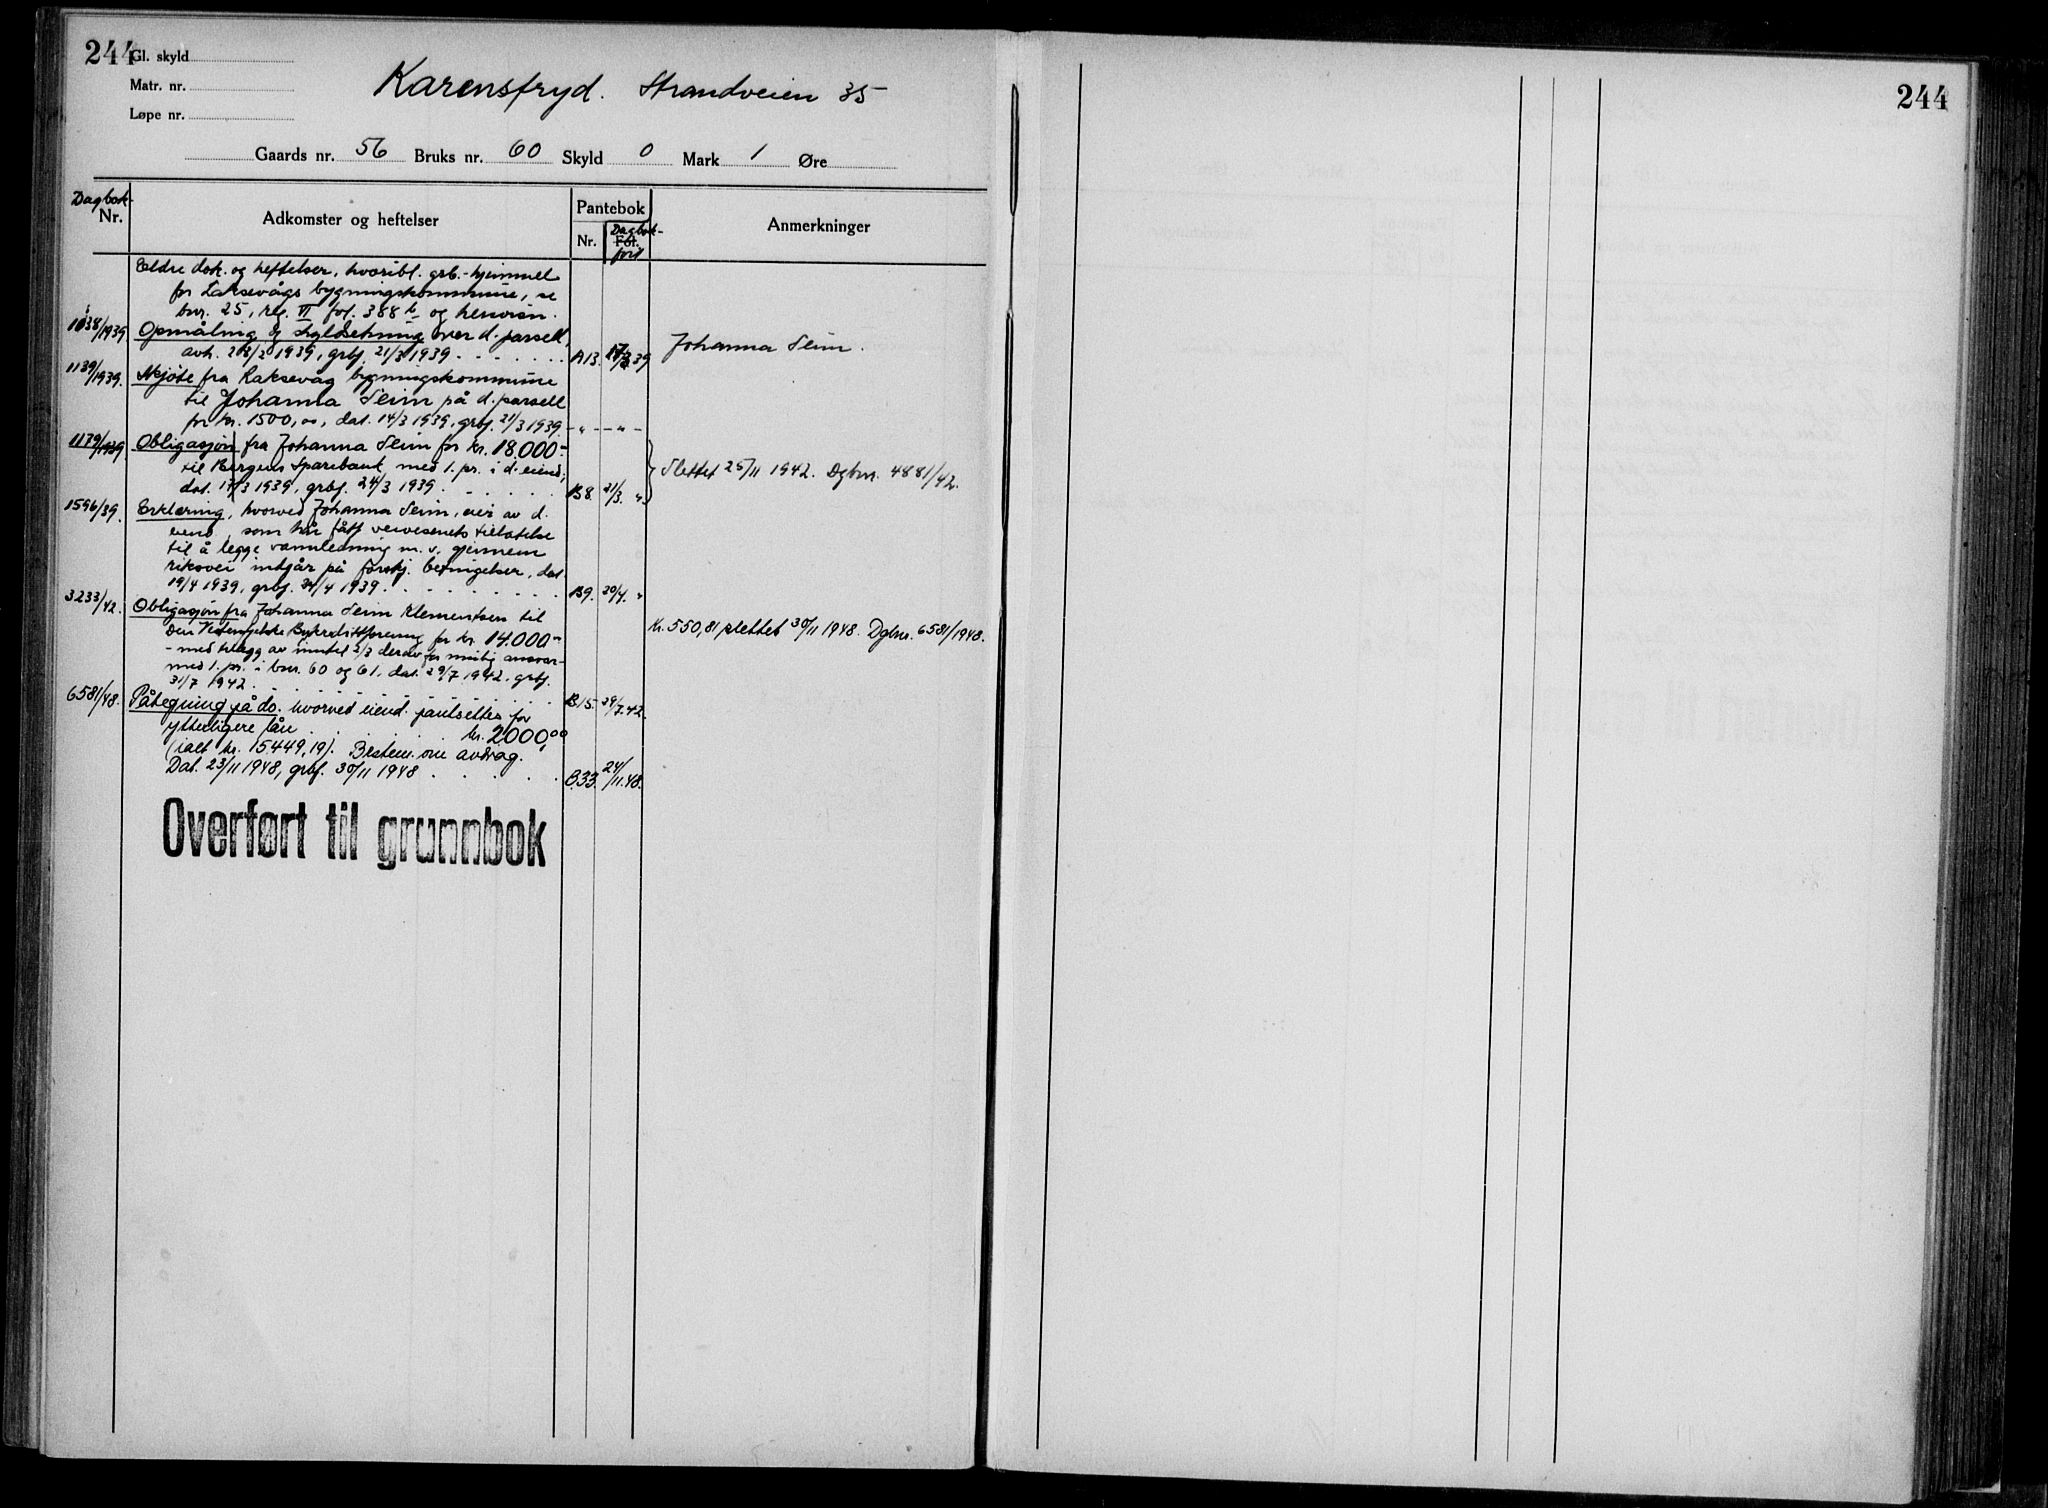 244
Gl. skyld
Matr. nr.
Løpe nr.
Karensfryd. Strandveien 35
Gaards nr. 56 Bruks nr. 60 Skyld 0 Mark 1 Øre
Dagbok-
Nr.
Adkomster og heftelser
Pantebok
Nr.
Fol.
Dagbok-
ført
Anmerkninger
Eldre dok. og heftelser, hvoribl. grb.-hjemmel
for Laksevågs bygningskommune, se
bnr. 25, reg. VI fol. 388 b og henvisn.
1138/1939 Opmåling og skyldsetning over d. parsell,
avh. 28/2 1939, grbf. 21/3 1939 A13. 17/3 39 Johanna Seim.
1139/1939. Skjøte fra Laksevåg bygningskommune
til Johanna Seim på d. parsell
for kr. 1500,00, dat. 14/3 1939, grbf. 21/3 1939 - " - - " -
1179/1939 Obligasjon fra Johanna Seim for kr. 18.000-
til Bergens Sparebank med 1. pr. i d. eiend.,
dat. 17/3 1939, grbf. 24/3 1939 B8. 21/3. " Slettet 25/11 1942. Dgbnr. 4881/42.
1596/39. Erklæring, hvorved Johanna Seim, eier av d.
eiend., som har fått veivesenets tillatelse
til å legge vannledning m.v. gjennem
riksvei inngår på forskj. betingelser, dat.
19/4 1939, grbf. 24/4 1939 B9. 20/4. "
3233/42. Obligasjon fra Johanna Seim Klementsen til
Den Vestenfjelske Bykreditforening for kr. 14.000-
- med tillegg av inntil 2/3 derav for mulig ansvar-
med 1. pr. i bnr. 60 og 61, dat. 29/7 1942, grbf.
31/7 1942 B15. 29/7.42. Kr. 550,81 slettet 30/11 1948. Dgbnr. 6581/1948.
6581/48. Påtegning på do. hvorved eiend. pantsettes for
ytterligere lån kr. 2000,00
(ialt kr. 15.449,19). Bestem. om avdrag.
Dat. 23/11 1948, grbf. 30/11 1948 B.33. 24/11.48.
Overført til grunnbok
244